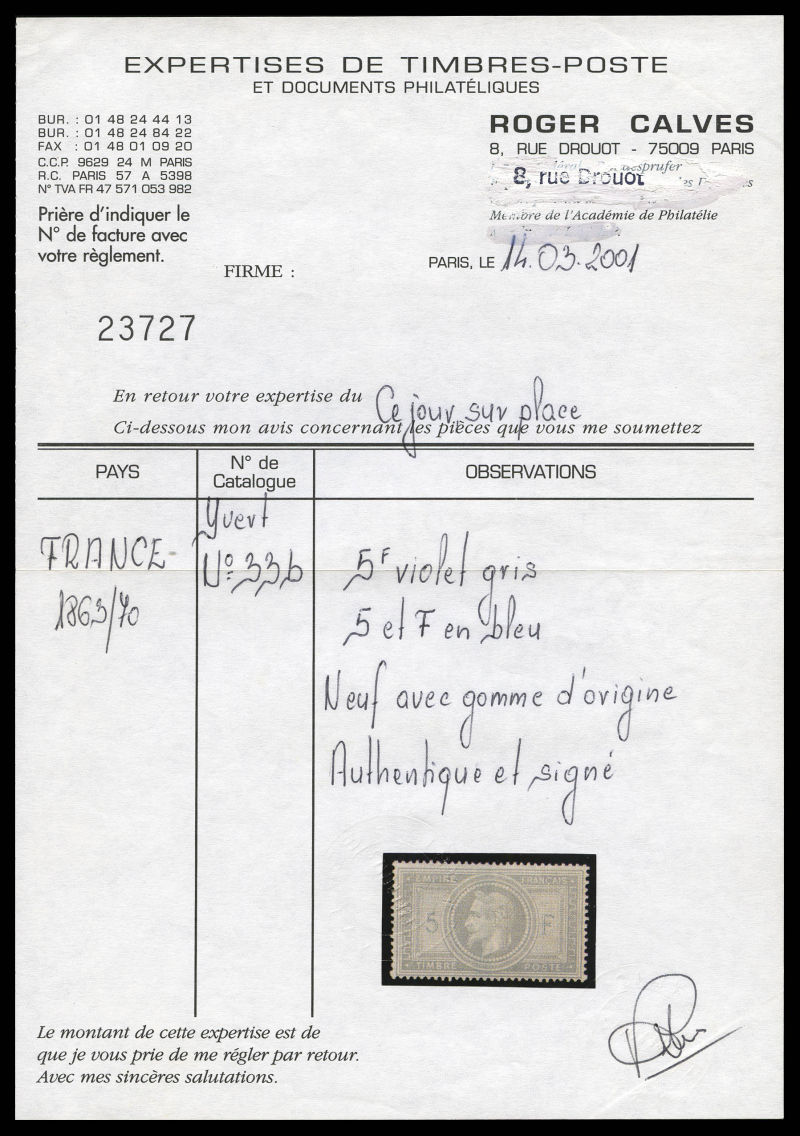 EXPERTISES DE TIMBRES-POSTE
ET DOCUMENTS PHILATÉLIQUES
BUR. : 01 48 24 44 13
BUR. : 01 48 24 84 22
FAX : 01 48 01 09 20
C.C.P. 9629 24 M PARIS
R.C. PARIS 57 A 5398
N° TVA FR 47 571 053 982
Prière d'indiquer le
N° de facture avec
votre règlement.
ROGER CALVES
8, RUE DROUOT - 75009 PARIS
8, rue Drouot
Membre de l'Académie de Philatélie
FIRME :
PARIS, LE 14.03.2001
23727
En retour votre expertise du Ce jour sur place
Ci-dessous mon avis concernant les pièces que vous me soumettez
PAYS
N° de
Catalogue
OBSERVATIONS
FRANCE -
1863/70
Yvert
N° 33b
5F violet gris
5 et F en bleu
Neuf avec gomme d'origine
Authentique et signé
EMPIRE FRANÇAIS
5 F
TIMBRE POSTE
Le montant de cette expertise est de
que je vous prie de me régler par retour.
Avec mes sincères salutations.